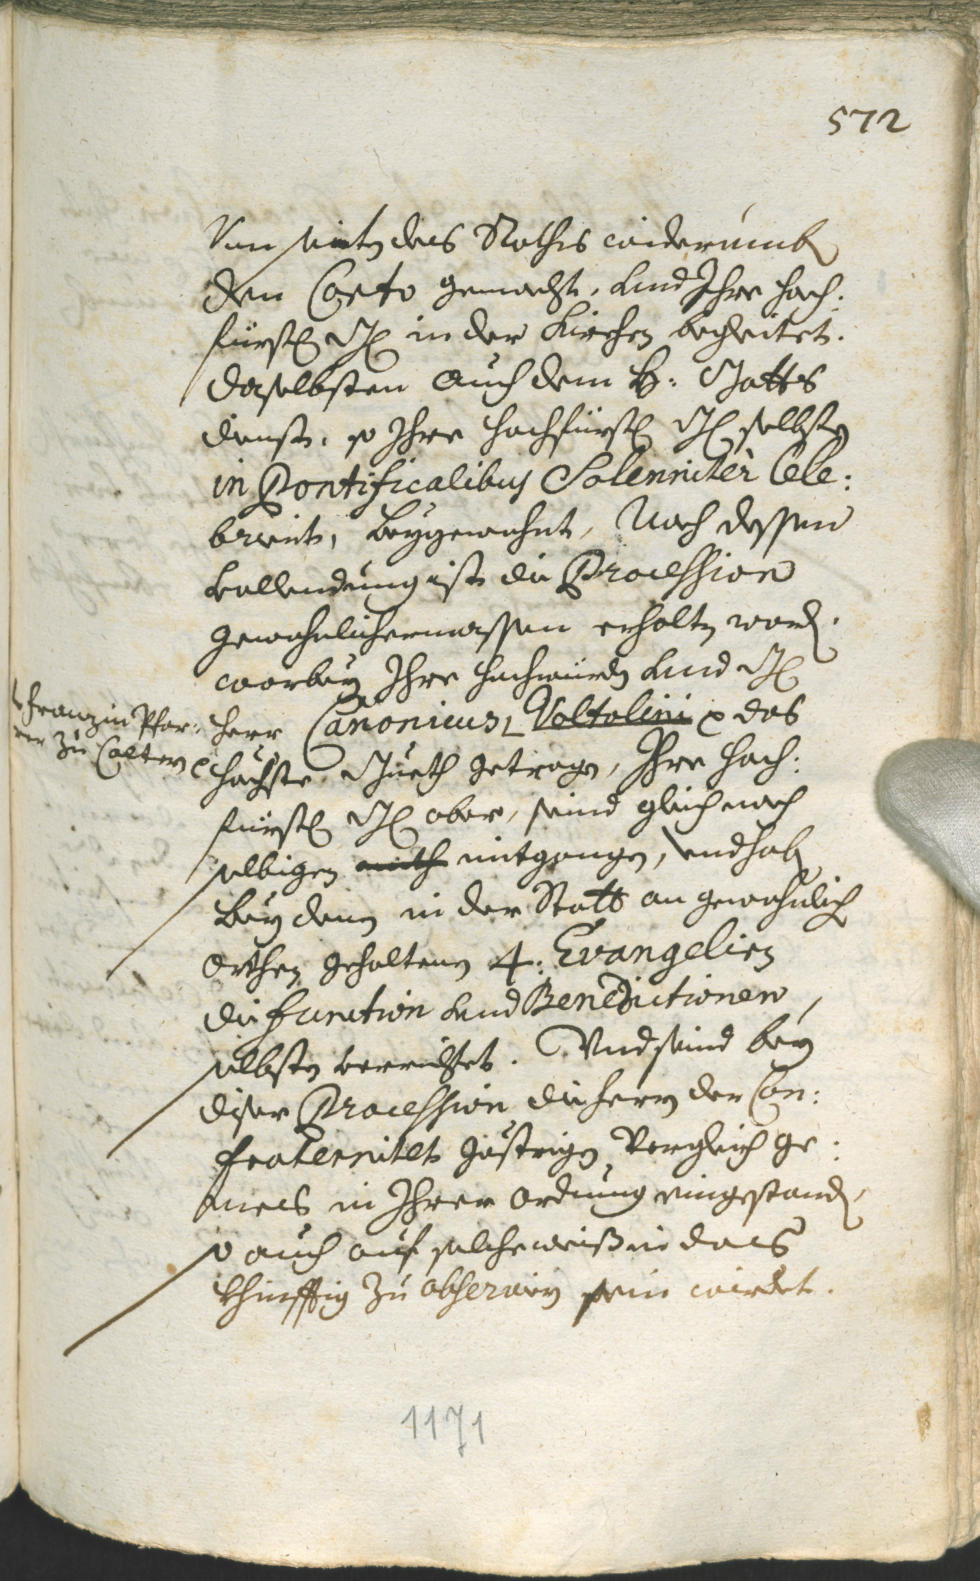 572
Von seiten des Rathes widerumb
den Corto gemacht, und Ihre hoch:
fürstl: Gl: in der Kirchen begleitet.
daselbsten auch dem H: Gotts
dienst, so Ihre hochfürstl: Gl: selbsten
in Pontificalibus Solenniter Cele:
briert, beygewohnt, Nach dessen
vollendung ist die Procession
gewohnlichermassen erhalten worden.
worbey Ihre hochwürden und Gl:
herr Canonicus Voltolini das
Franzin Pfar:
rer zu Caltern
höchste Gueth getragen, Ihre hoch:
fürstl: Gl: aber, seind gleich nach
selbigen mith mitgangen, und haben
bey denen in der Statt an gewohnlichen
orthen gehaltenen 4: Evangelien
die function und Benedictionen,
selbsten verrichtet. Und seind bey
diser Procession die herrn der Con:
fraternitet gestrigen Vergleich ge:
mess in Ihrer ordnung eingestanden,
so auch auf solche weiss in dass
khinfftig zu observiern sein wirdet.
1171